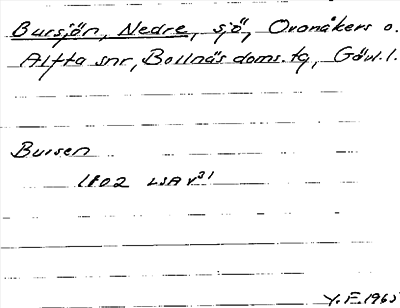 Bursjön, Nedre, sjö, Ovanåkers o.
Alfta snr, Bollnäs doms.tg, Gävl.l.
Bursen
1802 LSA V31
Y.F. 1965